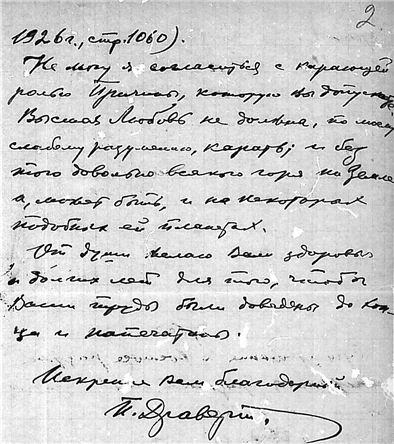 2
1926 г., стр. 1060).
Не могу я согласиться с карающей
ролью Причины, которую Вы допускаете.
Высшая Любовь не должна, по моему
слабому разумению, карать; и без
того довольно всякого горя на Земле
а, может быть, и на некоторых
подобных ей планетах.
От души желаю Вам здоровья
и долгих лет для того, чтобы
Ваши труды были доведены до кон-
ца и напечатаны.
Искренне Вам благодарный
П. Драверт.